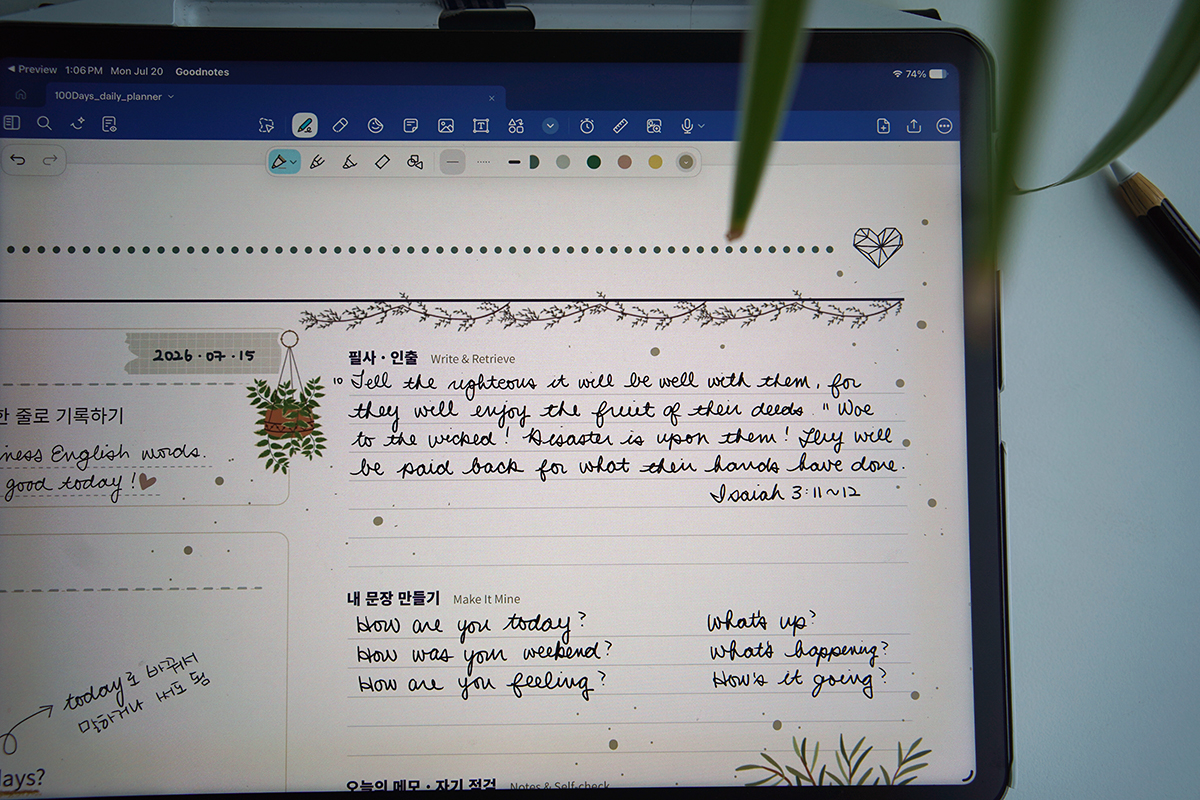 Preview 1:06 PM Mon Jul 20 Goodnotes
74%
100Days_daily_planner
2026.07.15
한 줄로 기록하기
iness English words.
good today!
today로 바꿔서
말하거나 써도 됨
ays?
필사·인출 Write & Retrieve
10 Tell the righteous it will be well with them, for
they will enjoy the fruit of their deeds. " Woe
to the wicked! Disaster is upon them! They will
be paid back for what their hands have done.
Isaiah 3:11~12
내 문장 만들기 Make It Mine
How are you today? What's up?
How was your weekend? What's happening?
How are you feeling? How's it going?
오늘의 메모·자기 점검 Notes & Self-check